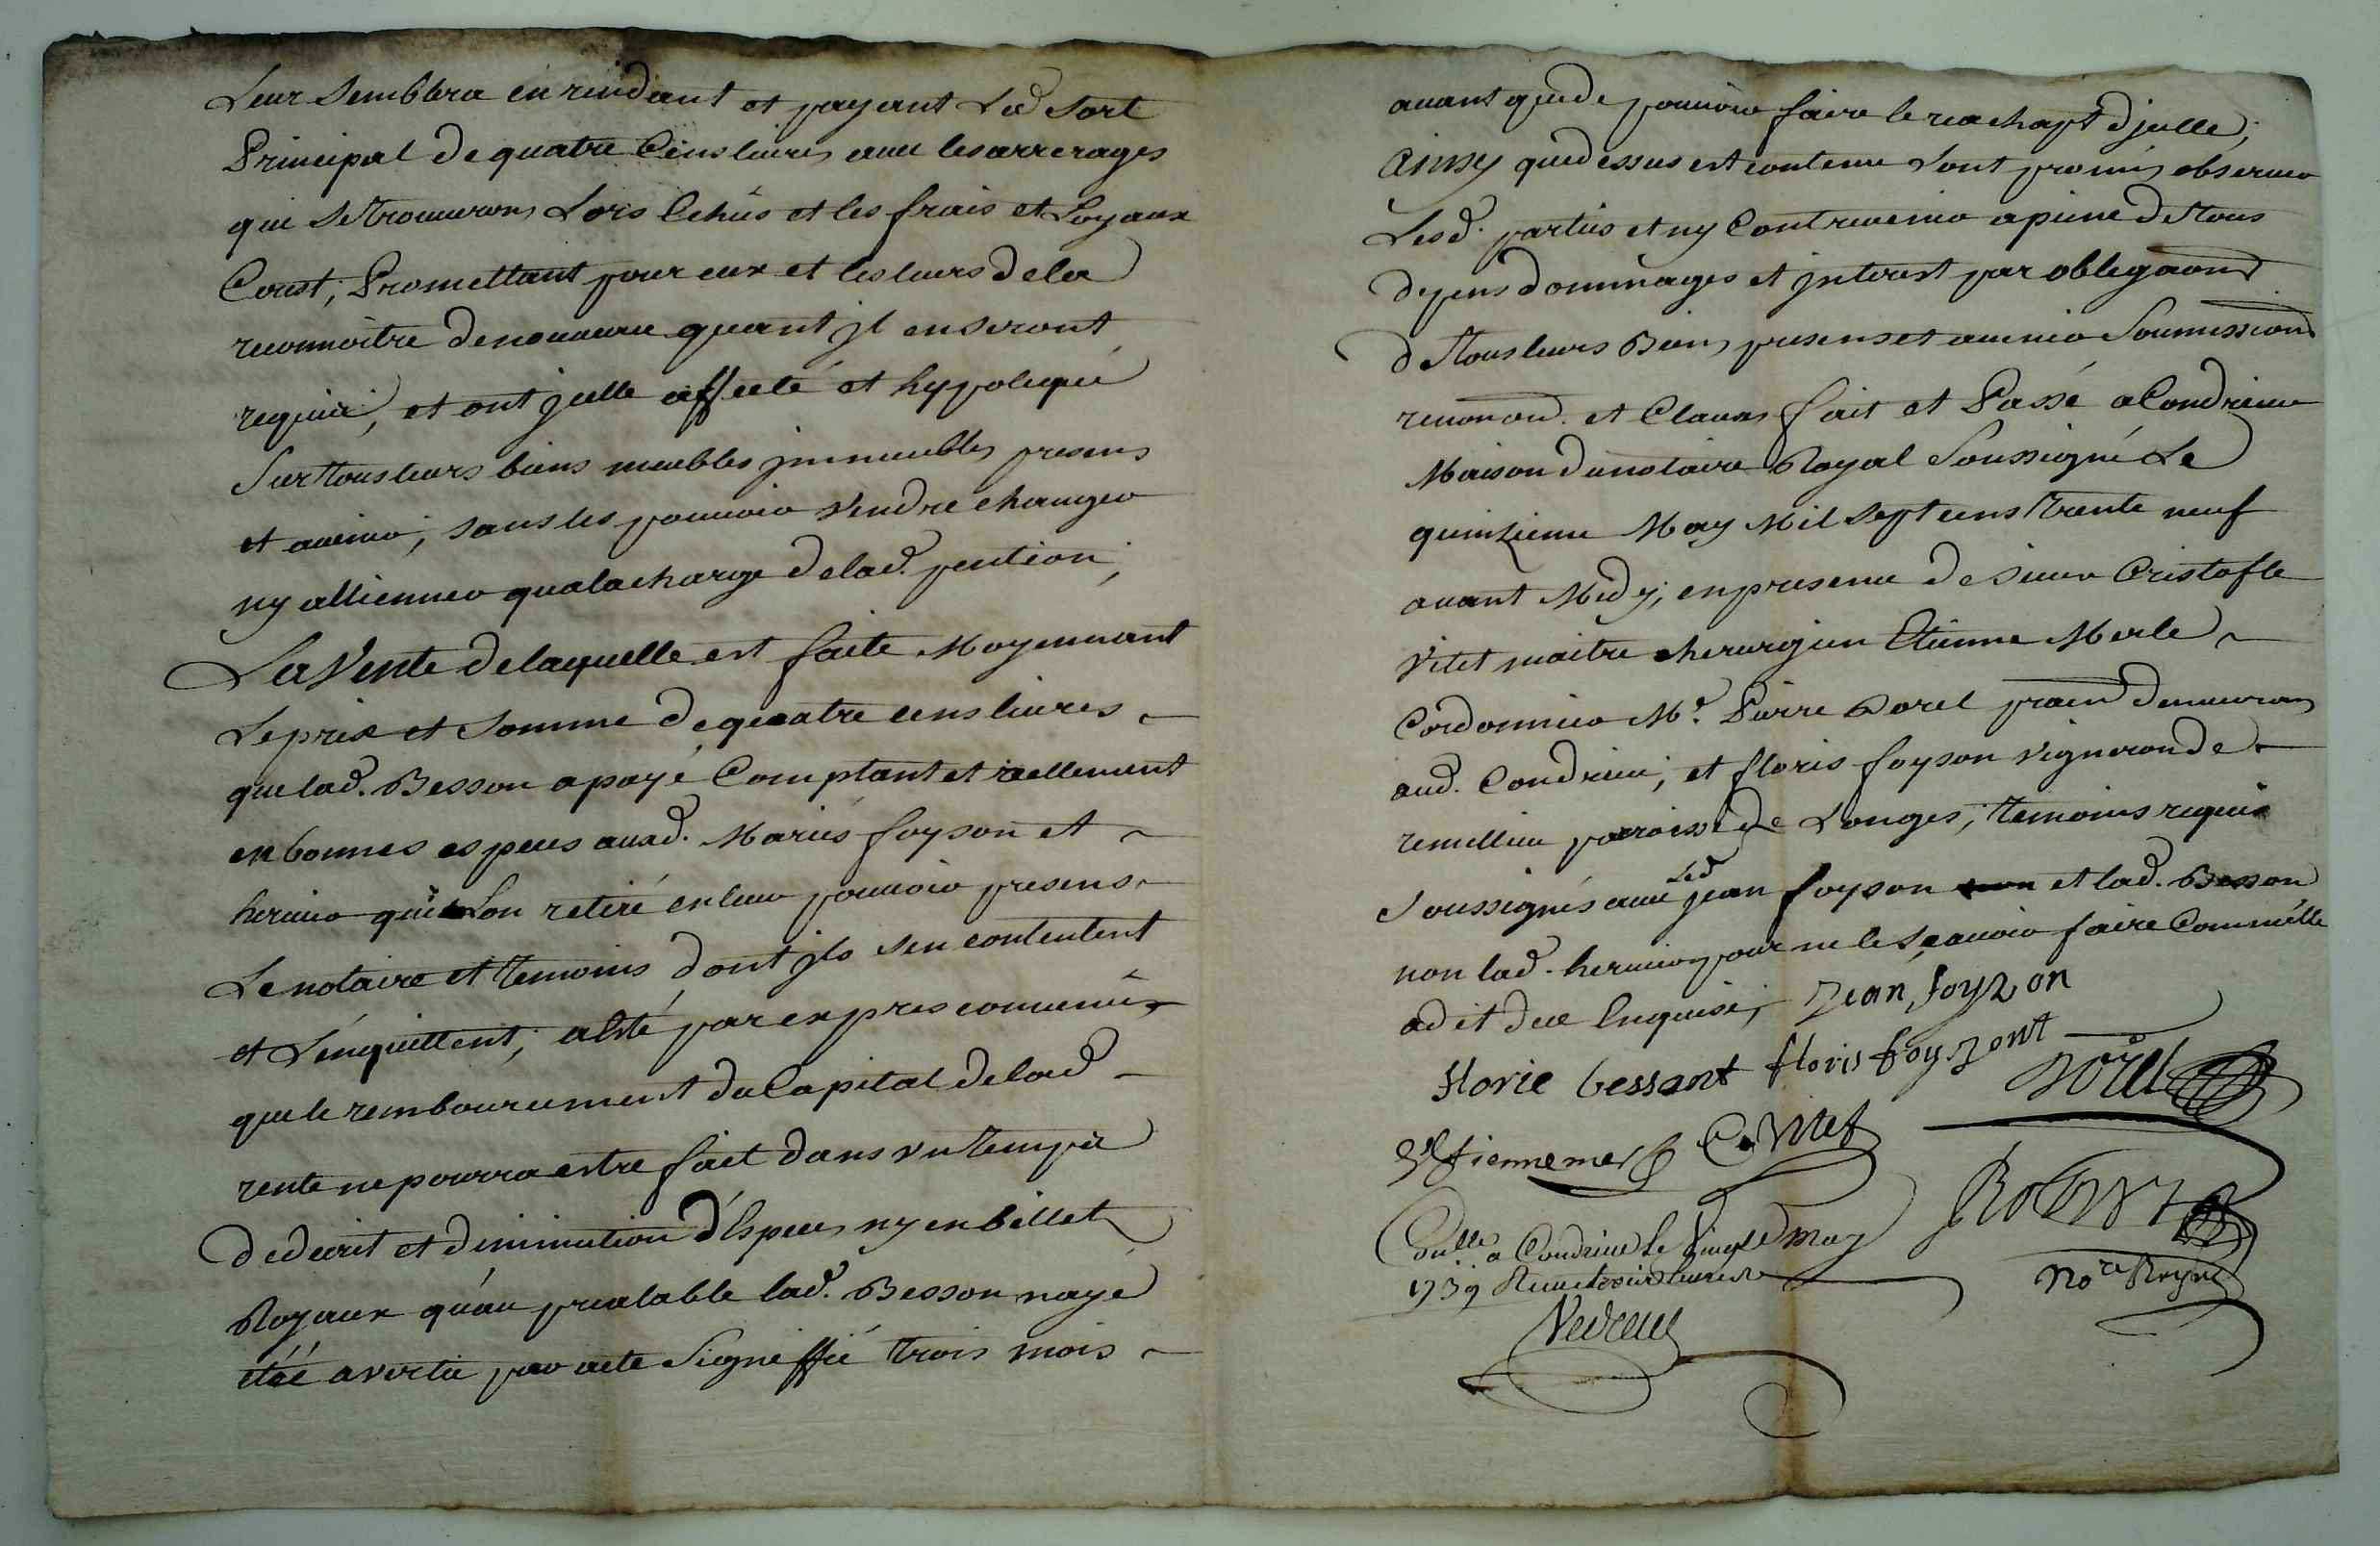 Leur Semblera en rendant et payant Led Sort
Principal de quatre Cens livres avec les arrerages
qui Se trouveront Lors Echûs et les frais et Loyaux
Coust; Promettant pour eux et les leurs de la
reconnoitre denouveau quant jl en seront
requis, et ont jcelle affecté et hypotequé
Sur Tous leurs biens meubles jmmeubles presens
et avenir, sans les pouvoir Vendre changer
ny alliener qualacharge de lad. pention;
La Vente de laquelle est faite Moyennant
Le prix et Somme de quatre cens livres
que lad. Besson a payé Comptant et reellement
en bonnes especes ausd. Mariés foyson et
herinier qui Lon retiré en leur pouvoir presens
Le notaire et Temoins dont jls sen contentent
et L'enquittent; a Esté par expres convenû
que le remboursement du Capital de lad
rente ne pourra estre fait dans vn Temps
de decrit et diminution d'Especes ny en billets
Royaux qu'au prealable lad. Besson naye
étéé avertie par acte Signeffié trois mois
avant que de pouvoir faire le reachapt djcelle;
Ainsy que dessus est contenu Sont promis observer
Lesd. parties et ny Contrevenir a peine de Tous
depens dommages et jnterest par obligaons
de Tous leurs Biens presens et avenir Soumissions
renonons. et Clauses fait et Passé a Condrieu
Maison du notaire Royal Soussigné Le
quinzieme May Mil Sept cens Trente neuf
avant Midy, en presence de Sieur Cristofle
Vitet maitre cherurgien Etienne Merle
Cordonnier Me. Pierre Dorel pracn demeurans
aud. Condrieu; et floris foyson vigneron de
remillieu parroisse de Longes, Temoins requis
Soussignés avec Led jean foyson et lad. Besson
non lad. herinier pour ne le sçavoir faire Comm'elle
a dit de ce Enquise; Jean foyzon
florie bessont floris foyzont
Dorel
Estienne merle C. Vitet
Conllé a Condrieu Le Vingt May
1739
No.re Royal